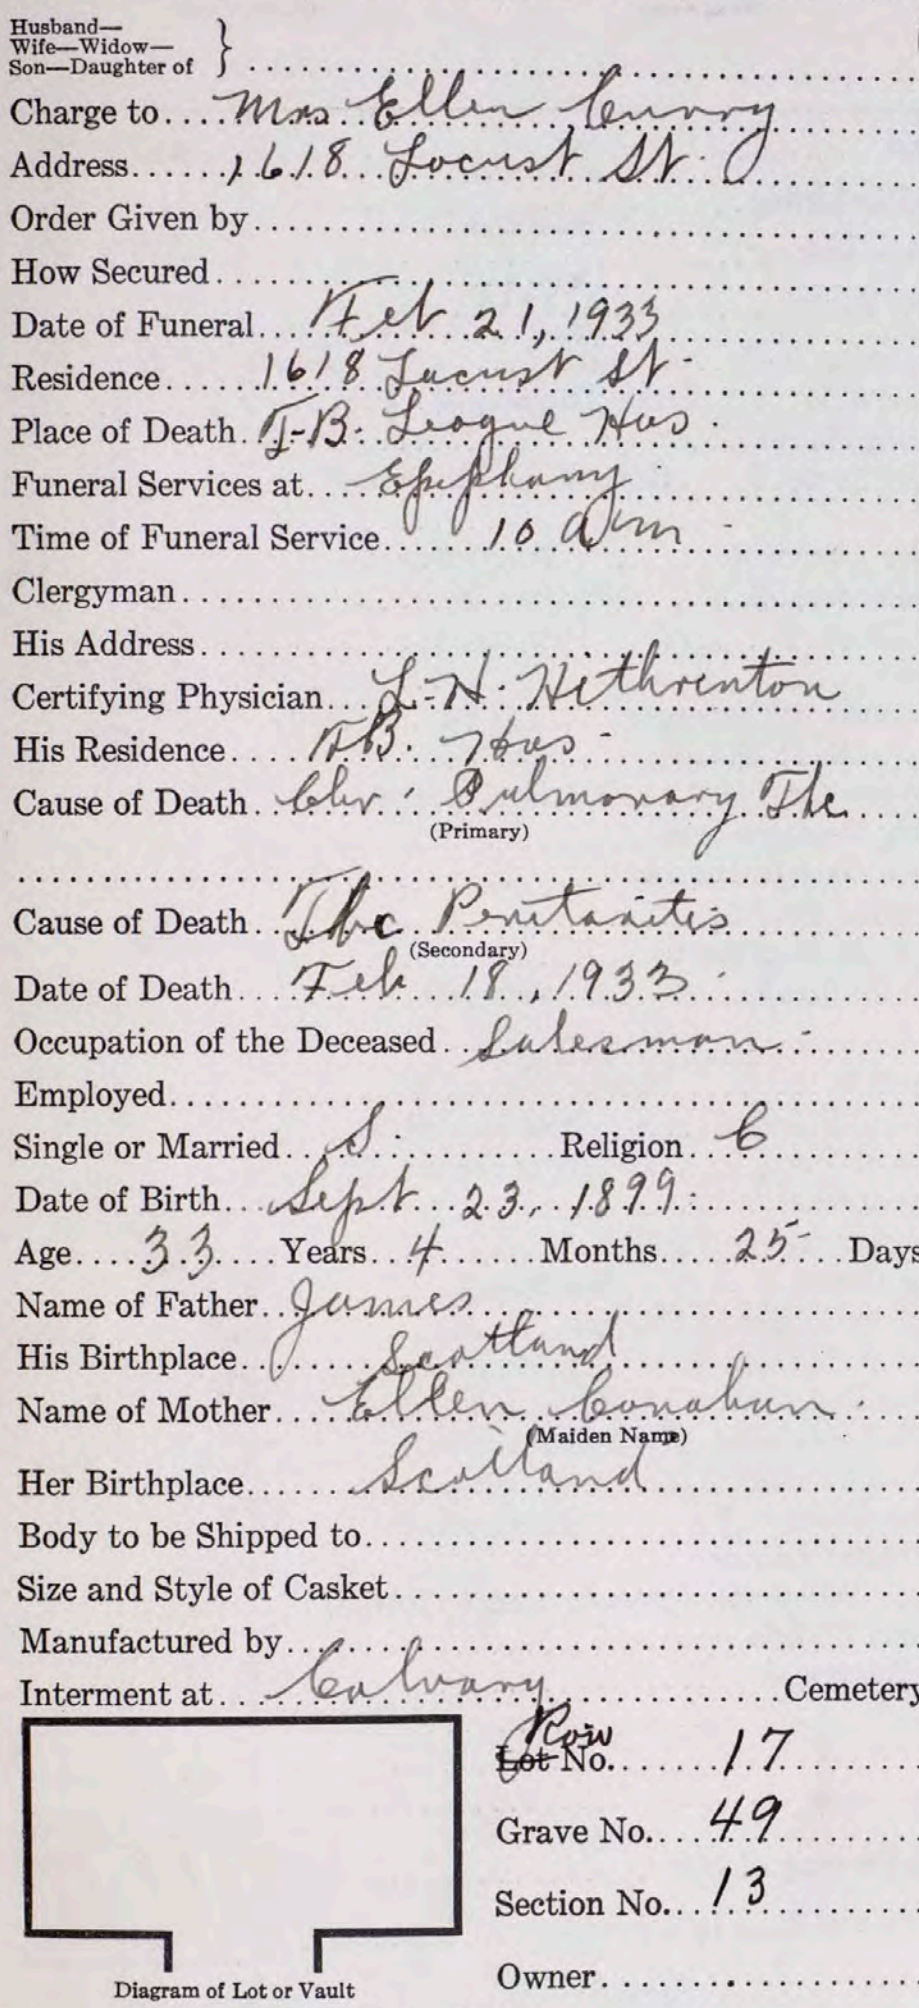 Husband—
Wife—Widow—
Son—Daughter of }
Charge to Mrs Ellen Curry
Address 1618 Locust St.
Order Given by
How Secured
Date of Funeral Feb 21, 1933
Residence 1618 Locust St
Place of Death T-B. League Hos
Funeral Services at Epiphany
Time of Funeral Service 10 am
Clergyman
His Address
Certifying Physician L.H. Hethrenton
His Residence T.B. Hos
Cause of Death Chr. Pulmonary Tbc
(Primary)
Cause of Death Tbc Penitanitis
(Secondary)
Date of Death Feb 18, 1933
Occupation of the Deceased Salesman
Employed
Single or Married S. Religion C
Date of Birth Sept 23, 1899.
Age 33 Years 4 Months 25 Days
Name of Father James
His Birthplace Scotland
Name of Mother Ellen Conahan
(Maiden Name)
Her Birthplace Scotland
Body to be Shipped to
Size and Style of Casket
Manufactured by
Interment at Calvary Cemetery
Row
Lot No. 17
Grave No. 49
Section No. 13
Owner
Diagram of Lot or Vault